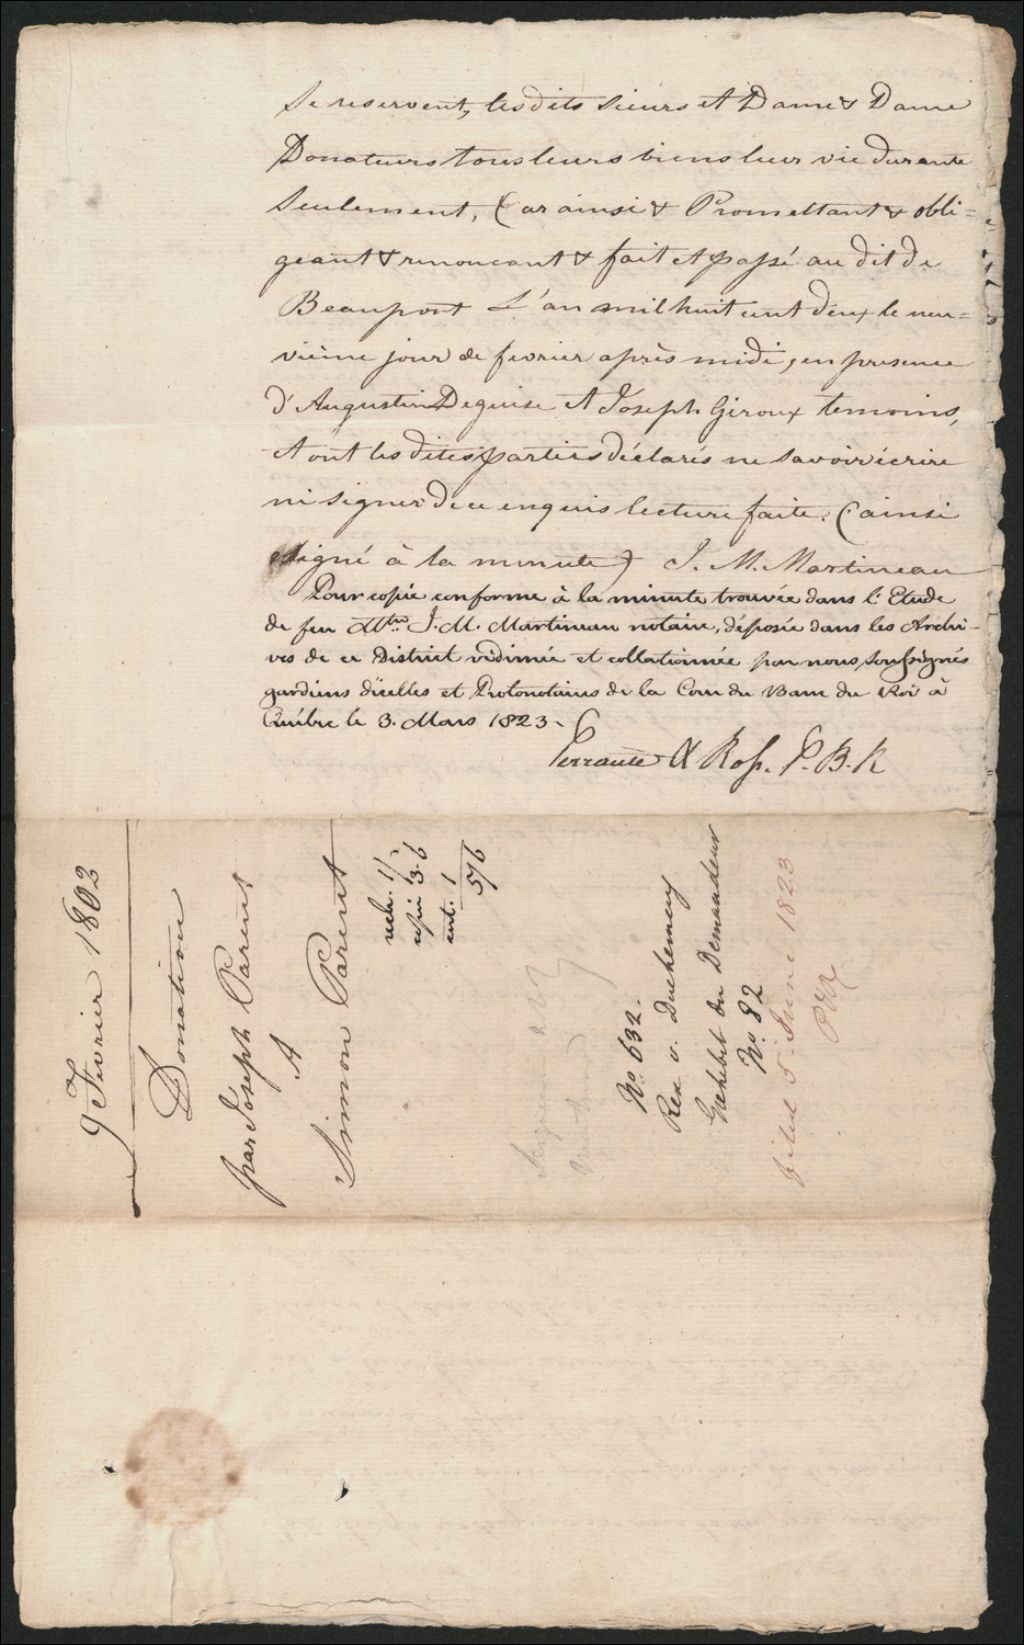 se reservent, lesdits sieurs et Dame & Dame
Donateurs tous leurs biens leur vie durante
seulement, Car ainsi & Promettant & obli=
geant & renoncant & fait et passé au dit de
Beauport L'an mil huit cent deux le neu=
vième jour de fevrier après midi, en presence
d'Augustin Deguise et Joseph Giroux temoins,
et ont les dites parties déclarés ne savoir écrire
ni signer de ce enquis lecture faite. (ainsi
signé à la minute) J. M. Martineau
Pour copie conforme à la minute trouvée dans l'Etude
de feu Mtre J. M. Martineau notaire, déposée dans les Archi-
ves de ce District vidimée et collationnée par nous soussignés
gardiens d'icelles et Protonotaires de la Cour du Banc du Roi à
Québec le 3. Mars 1823.
Perrault & Ross. P. B. R
9 Fevrier 1802
Donation
par Joseph Parent
A
Simon Parent
rech. 1/
copie 3.6
cert. 1
5/6
No. 632.
Rex v. Duchesnay
Exhibit du Demandeur
No. 82
Filed 5 June 1823